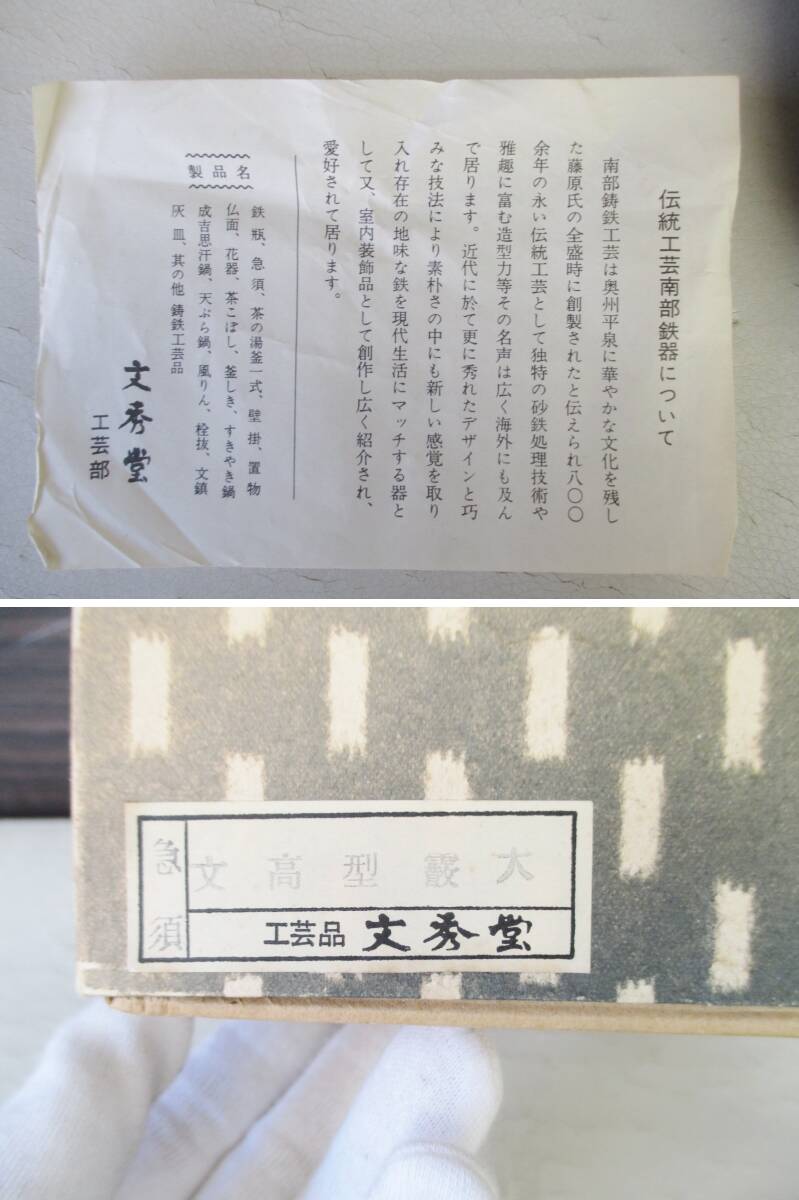 伝統工芸南部鉄器について
南部鋳鉄工芸は奥州平泉に華やかな文化を残し
た藤原氏の全盛時に創製されたと伝えられ八〇〇
余年の永い伝統工芸として独特の砂鉄処理技術や
雅趣に富む造型力等その名声は広く海外にも及ん
で居ります。近代に於て更に秀れたデザインと巧
みな技法により素朴さの中にも新しい感覚を取り
入れ存在の地味な鉄を現代生活にマッチする器と
して又、室内装飾品として創作し広く紹介され、
愛好されて居ります。
製品名
鉄瓶、急須、茶の湯釜一式、壁掛、置物
仏面、花器、茶こぼし、釜しき、すきやき鍋
成吉思汗鍋、天ぷら鍋、風りん、栓抜、文鎮
灰皿、其の他鋳鉄工芸品
文秀堂
工芸部
急須
文高型霰大
工芸品 文秀堂